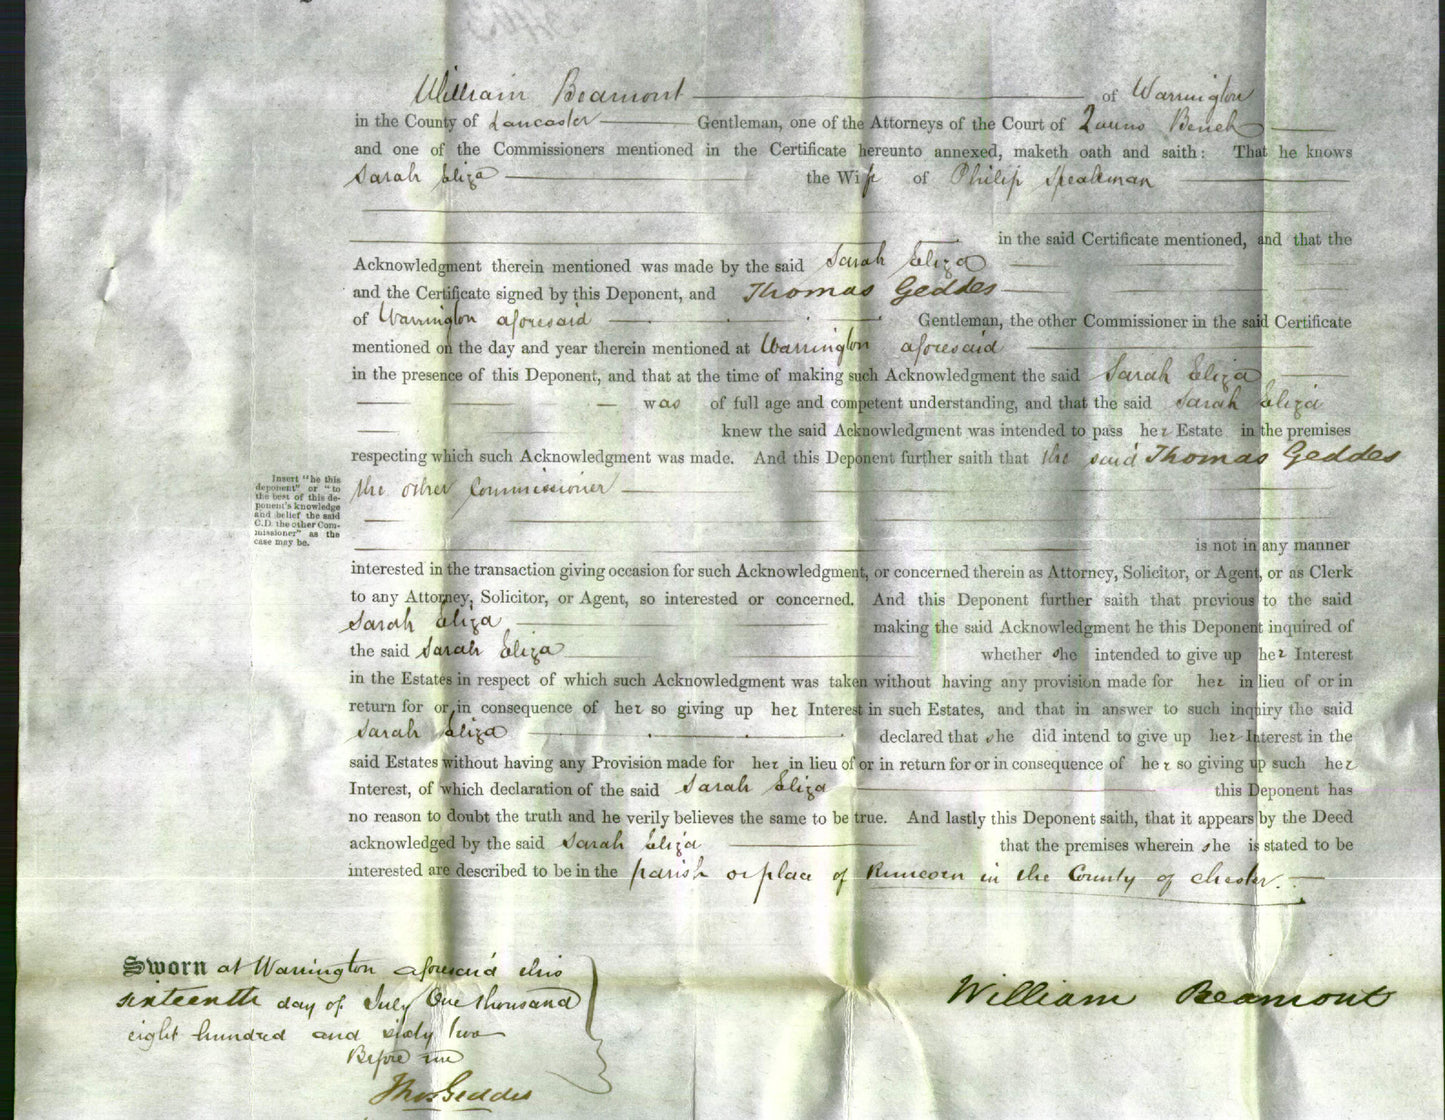 William Beamont of Warrington
in the County of Lancaster Gentleman, one of the Attorneys of the Court of Queens Bench
and one of the Commissioners mentioned in the Certificate hereunto annexed, maketh oath and saith: That he knows
Sarah Eliza the Wife of Philip Speakman
in the said Certificate mentioned, and that the
Acknowledgment therein mentioned was made by the said Sarah Eliza
and the Certificate signed by this Deponent, and Thomas Geddes
of Warrington aforesaid Gentleman, the other Commissioner in the said Certificate
mentioned on the day and year therein mentioned at Warrington aforesaid
in the presence of this Deponent, and that at the time of making such Acknowledgment the said Sarah Eliza
was of full age and competent understanding, and that the said Sarah Eliza
knew the said Acknowledgment was intended to pass her Estate in the premises
respecting which such Acknowledgment was made. And this Deponent further saith that the said Thomas Geddes
the other Commissioner
Insert "he this
deponent" or "to
the best of this de-
ponent's knowledge
and belief the said
C.D. the other Com-
missioner" as the
case may be.
is not in any manner
interested in the transaction giving occasion for such Acknowledgment, or concerned therein as Attorney, Solicitor, or Agent, or as Clerk
to any Attorney, Solicitor, or Agent, so interested or concerned. And this Deponent further saith that previous to the said
Sarah Eliza making the said Acknowledgment he this Deponent inquired of
the said Sarah Eliza whether she intended to give up her Interest
in the Estates in respect of which such Acknowledgment was taken without having any provision made for her in lieu of or in
return for or in consequence of her so giving up her Interest in such Estates, and that in answer to such inquiry the said
Sarah Eliza declared that she did intend to give up her Interest in the
said Estates without having any Provision made for her in lieu of or in return for or in consequence of her so giving up such her
Interest, of which declaration of the said Sarah Eliza this Deponent has
no reason to doubt the truth and he verily believes the same to be true. And lastly this Deponent saith, that it appears by the Deed
acknowledged by the said Sarah Eliza that the premises wherein she is stated to be
interested are described to be in the parish or place of Runcorn in the County of Chester.
Sworn at Warrington aforesaid this
sixteenth day of July One thousand
eight hundred and sixty two
Before me
Thos Geddes
William Beamont